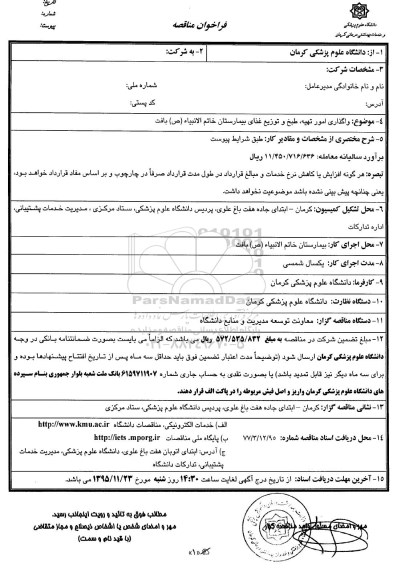 دانشگاه علوم پزشکی
و خدمات بهداشتی درمانی کرمان
شماره:
تاریخ:
پیوست:
فراخوان مناقصه
۱- از: دانشگاه علوم پزشکی کرمان
۲- به شرکت:
۳- مشخصات شرکت:
نام و نام خانوادگی مدیرعامل:
شماره ملی:
آدرس:
کد پستی:
۴- موضوع: واگذاری امور تهیه، طبخ و توزیع غذای بیمارستان خاتم الانبیاء (ص) بافت
۵- شرح مختصری از مشخصات و مقادیر کار: طبق شرایط پیوست
برآورد سالیانه معامله: ۱۱/۴۵۰/۷۱۶/۶۳۶ ریال
تبصره: هر گونه افزایش یا کاهش نرخ خدمات و مبالغ قرارداد در طول مدت قرارداد صرفاً در چارچوب و بر اساس مفاد قرارداد خواهد بود،
یعنی چنانچه پیش بینی نشده باشد موضوعیت نخواهد داشت.
۶- محل تشکیل کمیسیون: کرمان – ابتدای جاده هفت باغ علوی، پردیس دانشگاه علوم پزشکی، ستاد مرکزی ، مدیریت خدمات پشتیبانی،
اداره تدارکات
۷- محل اجرای کار: بیمارستان خاتم الانبیاء (ص) بافت
۸- مدت اجرای کار: یکسال شمسی
۹- کارفرما: دانشگاه علوم پزشکی کرمان
۱۰- دستگاه نظارت: دانشگاه علوم پزشکی کرمان
۱۱- دستگاه مناقصه گزار: معاونت توسعه مدیریت و منابع دانشگاه
۱۲- مبلغ تضمین شرکت در مناقصه به مبلغ ۵۷۲/۵۳۵/۸۳۲ ریال می باشد که الزاماً می بایست بصورت ضمانتنامه بانکی در وجه
دانشگاه علوم پزشکی کرمان ارسال شود (توضیحاً مدت اعتبار تضمین فوق باید حداقل سه ماه پس از تاریخ افتتاح پیشنهادها بوده و
برای سه ماه دیگر نیز قابل تمدید باشد) یا بصورت نقدی به حساب جاری شماره ۶۱۵۹۷۱۱۹۰۷ بانک ملت شعبه بلوار جمهوری بنام سپرده
های دانشگاه علوم پزشکی کرمان واریز و اصل فیش مربوطه را در پاکت الف قرار دهند.
۱۳- نشانی مناقصه گزار: کرمان – ابتدای جاده هفت باغ علوی، پردیس دانشگاه علوم پزشکی، ستاد مرکزی
۱۴- محل دریافت اسناد مناقصه شماره: ۷۷/۳/۱۲/۹۵
الف) خدمات الکترونیکی، مناقصات دانشگاه http://www.kmu.ac.ir
ب) پایگاه ملی مناقصات http://iets.mporg.ir
ج) آدرس: ابتدای اتوبان هفت باغ علوی، دانشگاه علوم پزشکی، مدیریت خدمات
پشتیبانی، تدارکات دانشگاه
۱۵- آخرین مهلت دریافت اسناد: از تاریخ درج آگهی لغایت ساعت ۱۴:۳۰ روز شنبه مورخ ۱۳۹۵/۱۱/۲۳ می باشد.
مطالب فوق به تائید و رویت اینجانب رسید.
مهر و امضای شخص یا اشخاص ذیصلاح و مجاز متقاضی
(با قید نام و سمت)
مهر و امضای
ParsNamadData